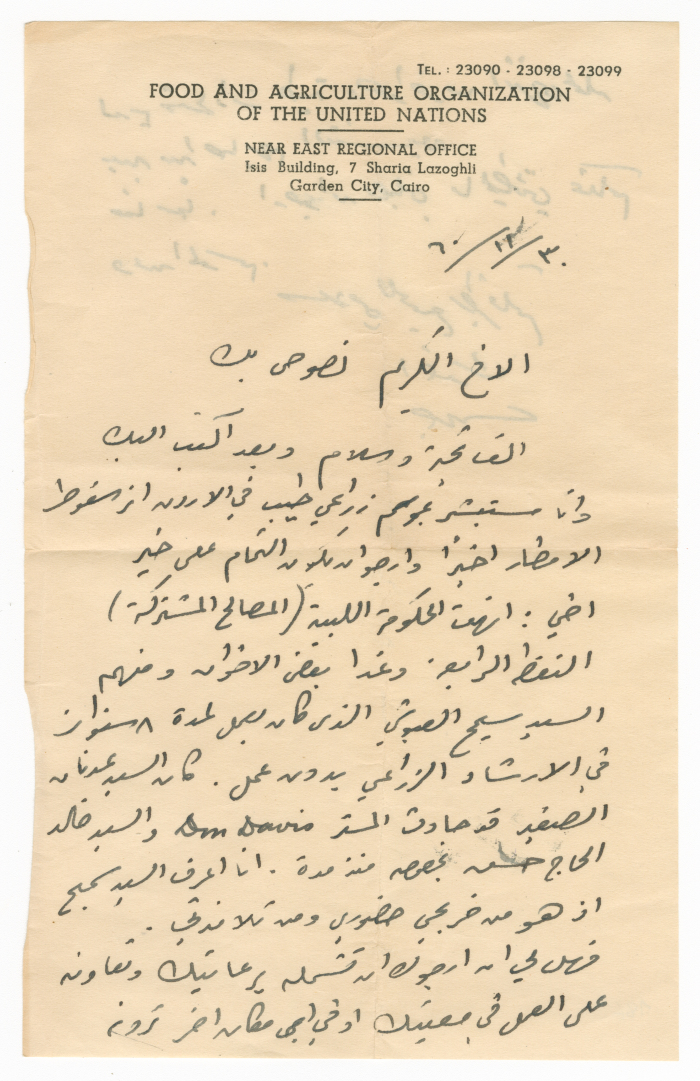 TEL. : 23090 - 23098 - 23099
FOOD AND AGRICULTURE ORGANIZATION
OF THE UNITED NATIONS
NEAR EAST REGIONAL OFFICE
Isis Building, 7 Sharia Lazoghli
Garden City, Cairo
٣٠/١٢/٦٠
الاخ الكريم نصوحي بك
الف تحية وسلام وبعد اكتب اليك
وانا مستبشر بموسم زراعي طيب في الاردن اثر سقوط
الامطار اخيرًا وارجو ان يكون التمام على خير
اخي : انهت الحكومة الليبية (المصالح المشتركة)
النقطة الرابعة وغدا بعض الاخوان ومنهم
السيد سميح العبوشي الذي كان يعمل لمدة ٨ سنوات
في الارشاد الزراعي بدون عمل . كان السيد عدنان
الصغير قد حادث المستر Don Davis والسيد خالد
الحاج حسن بخصوصه منذ مدة . انا اعرف السيد سميح
اذ هو من خريجي خضوري ومن تلامذتي .
فهل لي ان ارجوك ان تشمله برعايتك وتعاونه
على العمل في معيتك او في اي مكان اخر ترونه